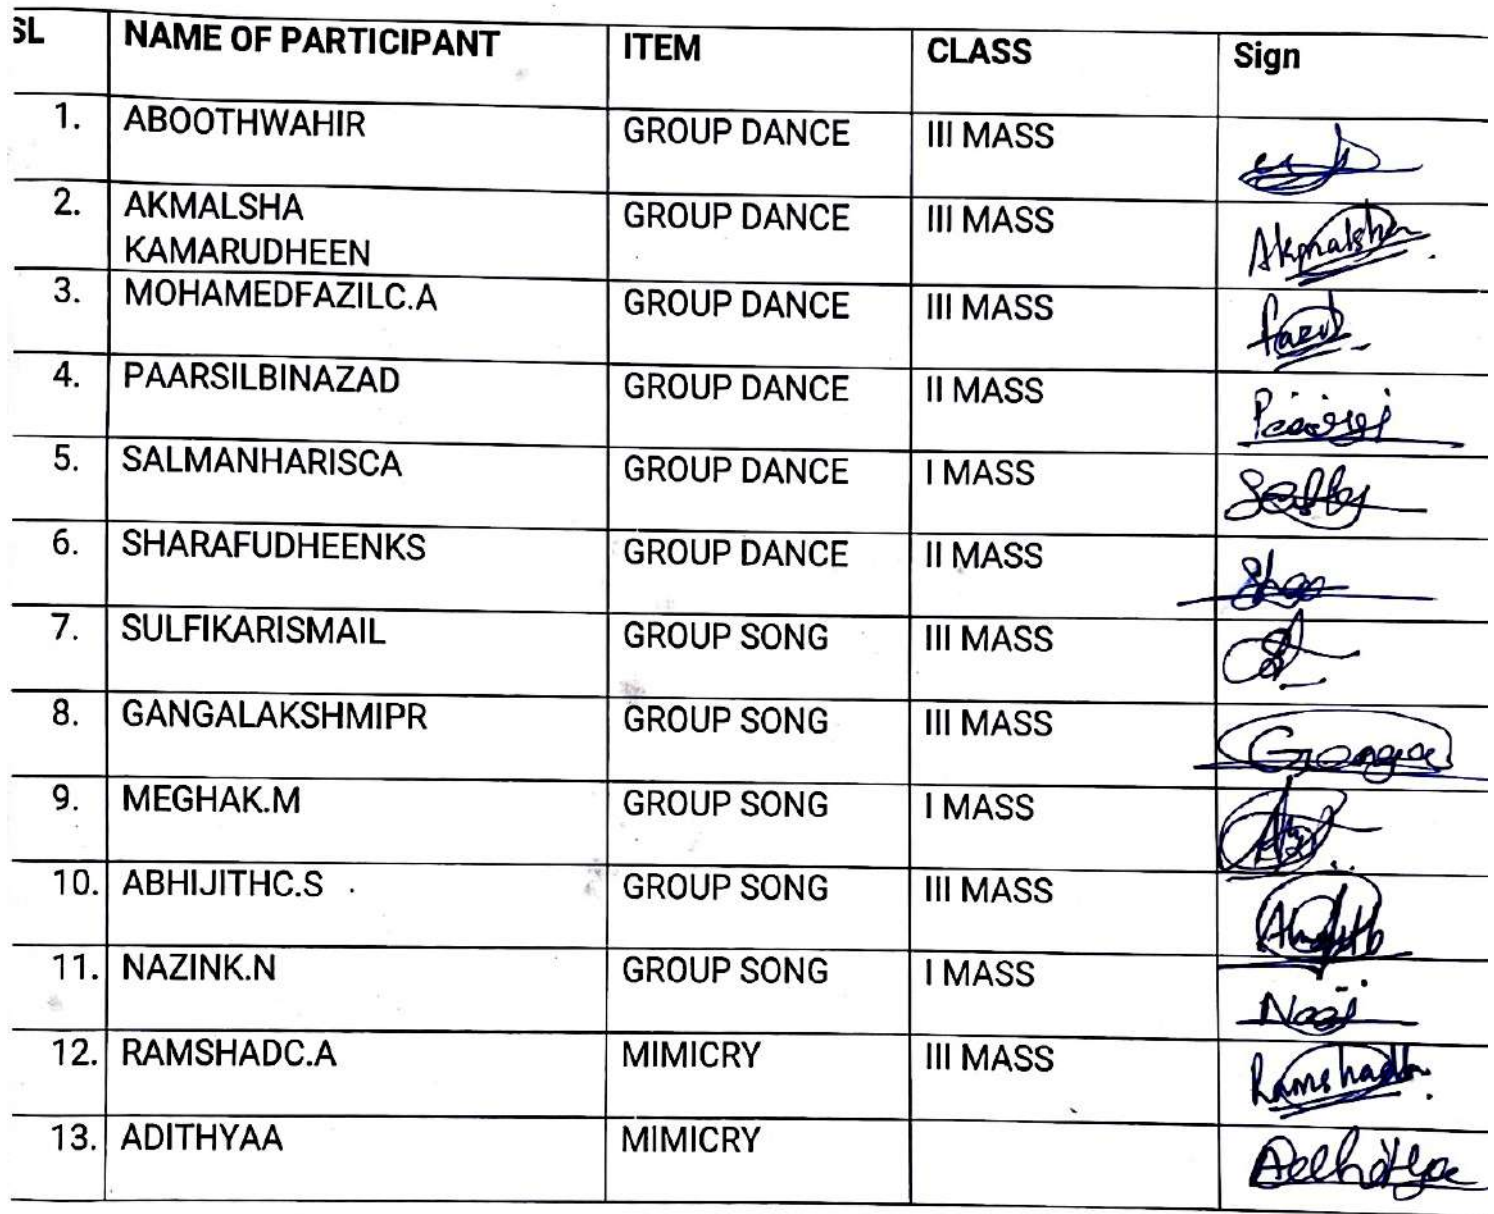 SL NAME OF PARTICIPANT ITEM CLASS Sign
1. ABOOTHWAHIR GROUP DANCE III MASS
2. AKMALSHA GROUP DANCE III MASS Akmalsha
KAMARUDHEEN
3. MOHAMEDFAZILC.A GROUP DANCE III MASS
4. PAARSILBINAZAD GROUP DANCE II MASS
5. SALMANHARISCA GROUP DANCE I MASS
6. SHARAFUDHEENKS GROUP DANCE II MASS
7. SULFIKARISMAIL GROUP SONG III MASS
8. GANGALAKSHMIPR GROUP SONG III MASS Ganga
9. MEGHAK.M GROUP SONG I MASS
10. ABHIJITHC.S GROUP SONG III MASS
11. NAZINK.N GROUP SONG I MASS
12. RAMSHADC.A MIMICRY III MASS
13. ADITHYAA MIMICRY